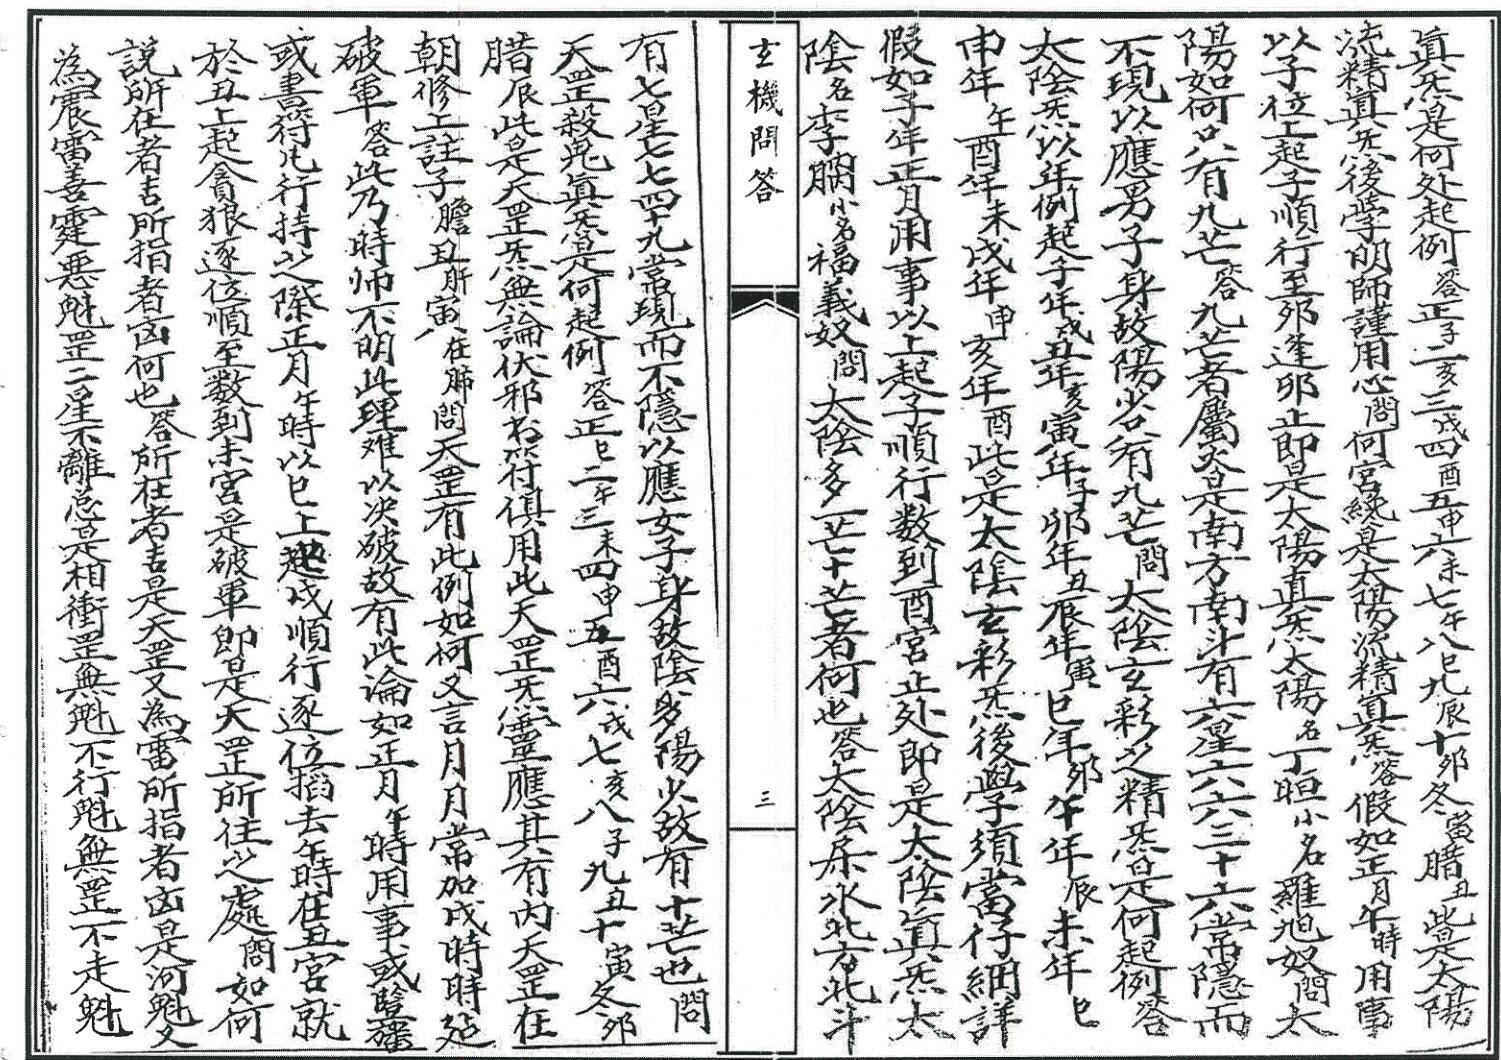 真炁是何处起例答正子二亥三戌四酉五申六未七午八巳九辰十卯冬寅腊丑此是太陽
流精真炁後学明師謹用心問何宮纔是太陽流精真炁答假如正月午時用事
以子位上起子順行至卯逢卯止即是太陽直炁太陽名丁晅小名羅旭奴問太
陽如何只有九芒答九芒者屬火是南方南斗有六星六六三十六常隱而
不現以應男子身故陽少只有九芒問太陰玄彩之精炁是何起例答
太陰炁以年例起子年戌丑年亥寅年子卯年丑辰年寅巳年卯午年辰未年巳
申年午酉年未戌年申亥年酉此是太陰玄彩炁後學須當仔細詳
假如子年正月用事以上起子順行数到酉宮止处即是太陰真炁太
陰名李腡小名福義奴問太陰多一芒十芒者何也答太陰属水北方北斗
玄機問答
三
有七星七七四十九常現而不隱以應女子身故陰多陽少故有十芒也問
天罡殺炁真炁是何起例答正巳二午三未四申五酉六戌七亥八子九丑十寅冬卯
腊辰此是天罡炁無論伏邪書符俱用此天罡炁靈應其有內天罡在
朝修上註子膽丑肝寅在肺問天罡有此例如何又言月月常加戌時時起
破軍答此乃時师不明此理难以决破故有此論如正月午時用事或醫禳
或書符凡行持之際正月午時以巳上起戌順行逐位掐去午時在丑宮就
於丑上起貪狼逐位順至数到未宮是破軍即是天罡所住之處問如何
說所在者吉所指者凶何也答所在者吉是天罡又為雷所指者凶是河魁又
為震雷善霆惡魁罡二星不離总是相衝罡無魁不行魁無罡不走魁